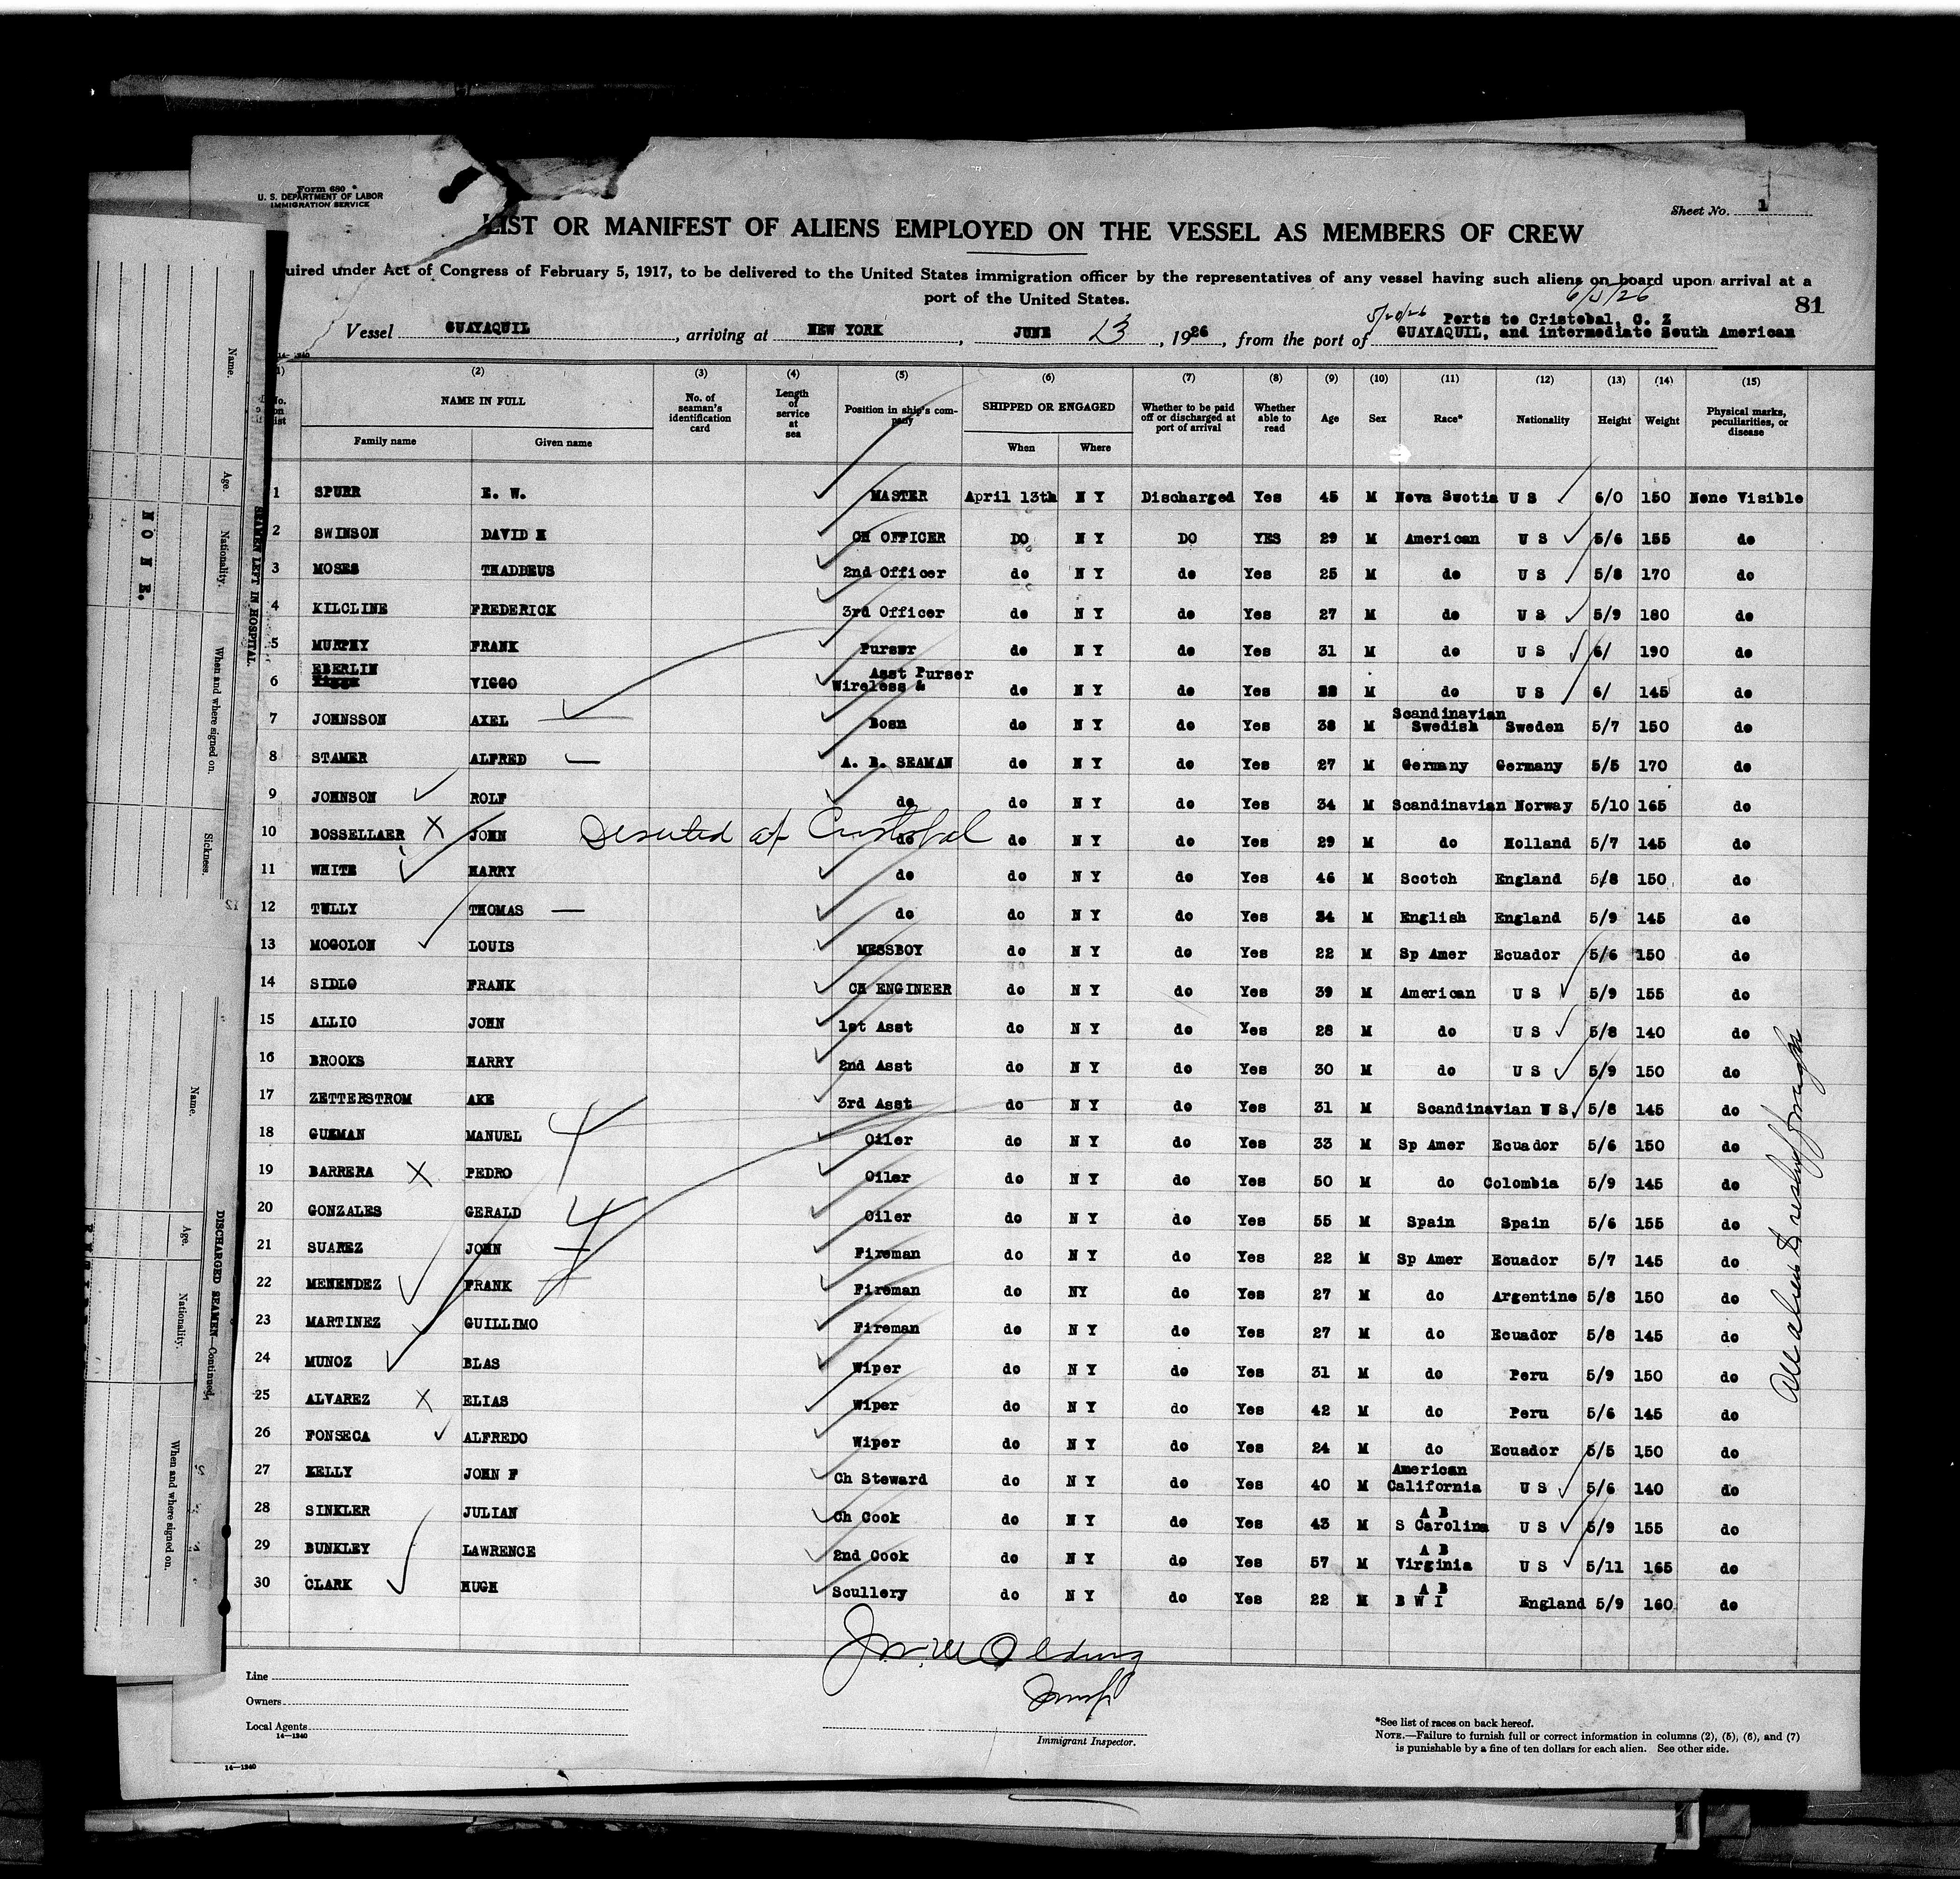 Form 680
U. S. DEPARTMENT OF LABOR
IMMIGRATION SERVICE
Sheet No. 1
LIST OR MANIFEST OF ALIENS EMPLOYED ON THE VESSEL AS MEMBERS OF CREW
uired under Act of Congress of February 5, 1917, to be delivered to the United States immigration officer by the representatives of any vessel having such aliens on board upon arrival at a
port of the United States.
6/5/26
81
5/20/26 Ports to Cristobal, C. Z
Vessel GUAYAQUIL, arriving at NEW YORK, JUNE 13, 1926, from the port of GUAYAQUIL, and intermediate South American
14-1240
(1) (2) (3) (4) (5) (6) (7) (8) (9) (10) (11) (12) (13) (14) (15)
No. on list NAME IN FULL Family name Given name No. of seaman's identification card Length of service at sea Position in ship's company SHIPPED OR ENGAGED When Where Whether to be paid off or discharged at port of arrival Whether able to read Age Sex Race* Nationality Height Weight Physical marks, peculiarities, or disease
1 SPURR E. W. MASTER April 13th N Y Discharged Yes 45 M Nova Swotia U S 6/0 150 None Visible
2 SWINSON DAVID H CH OFFICER DO N Y DO YES 29 M American U S 5/6 155 do
3 MOSES THADDEUS 2nd Officer do N Y do Yes 25 M do U S 5/8 170 do
4 KILCLINE FREDERICK 3rd Officer do N Y do Yes 27 M do U S 5/9 180 do
5 MURPHY FRANK Purser do N Y do Yes 31 M do U S 6/ 190 do
6 EBERLIN VIGGO Wireless & Asst Purser do N Y do Yes M do U S 6/ 145 do
7 JOHNSSON AXEL Bosn do N Y do Yes 38 M Scandinavian Swedish Sweden 5/7 150 do
8 STAMER ALFRED A. B. SEAMAN do N Y do Yes 27 M Germany Germany 5/5 170 do
9 JOHNSON ROLF do do N Y do Yes 34 M Scandinavian Norway 5/10 165 do
10 BOSSELLAER X JOHN Deserted at Cristobal do do N Y do Yes 29 M do Holland 5/7 145 do
11 WHITE HARRY do do N Y do Yes 46 M Scotch England 5/8 150 do
12 TULLY THOMAS do do N Y do Yes 34 M English England 5/9 145 do
13 MOGOLON LOUIS MESSBOY do N Y do Yes 22 M Sp Amer Ecuador 5/6 150 do
14 SIDLO FRANK CH ENGINEER do N Y do Yes 39 M American U S 5/9 155 do
15 ALLIO JOHN 1st Asst do N Y do Yes 28 M do U S 5/8 140 do
16 BROOKS HARRY 2nd Asst do N Y do Yes 30 M do U S 5/9 150 do
17 ZETTERSTROM AKE 3rd Asst do N Y do Yes 31 M Scandinavian U S 5/8 145 do
18 GUZMAN MANUEL Oiler do N Y do Yes 33 M Sp Amer Ecuador 5/6 150 do
19 BARRERA X PEDRO Oiler do N Y do Yes 50 M do Colombia 5/9 145 do
20 GONZALES GERALD Oiler do N Y do Yes 55 M Spain Spain 5/6 155 do
21 SUAREZ JOHN Fireman do N Y do Yes 22 M Sp Amer Ecuador 5/7 145 do
22 MENENDEZ FRANK Fireman do NY do Yes 27 M do Argentine 5/8 150 do
23 MARTINEZ GUILLIMO Fireman do N Y do Yes 27 M do Ecuador 5/8 145 do
24 MUNOZ BLAS Wiper do N Y do Yes 31 M do Peru 5/9 150 do
25 ALVAREZ X ELIAS Wiper do N Y do Yes 42 M do Peru 5/6 145 do
26 FONSECA ALFREDO Wiper do N Y do Yes 24 M do Ecuador 5/5 150 do
27 KELLY JOHN F Ch Steward do N Y do Yes 40 M American California U S 5/6 140 do
28 SINKLER JULIAN Ch Cook do N Y do Yes 43 M A B S Carolina U S 5/9 155 do
29 BUNKLEY LAWRENCE 2nd Cook do N Y do Yes 57 M A B Virginia U S 5/11 165 do
30 CLARK HUGH Scullery do N Y do Yes 22 M A B B W I England 5/9 160 do
Line
Owners
Local Agents
14-1240
Immigrant Inspector.
*See list of races on back hereof.
NOTE.—Failure to furnish full or correct information in columns (2), (5), (6), and (7)
is punishable by a fine of ten dollars for each alien. See other side.
14-1240
SEAMEN LEFT IN HOSPITAL
Name. Age. Nationality. When and where signed on. Sickness.
NONE.
DISCHARGED SEAMEN—Continued.
Name. Age. Nationality. When and where signed on.